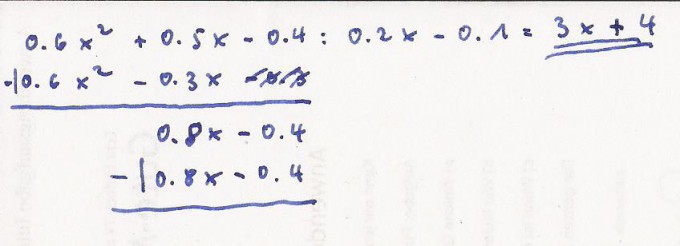 0.6x² + 0.5x - 0.4 : 0.2x - 0.1 = 3x + 4
-|0.6x² - 0.3x
0.8x - 0.4
-|0.8x - 0.4